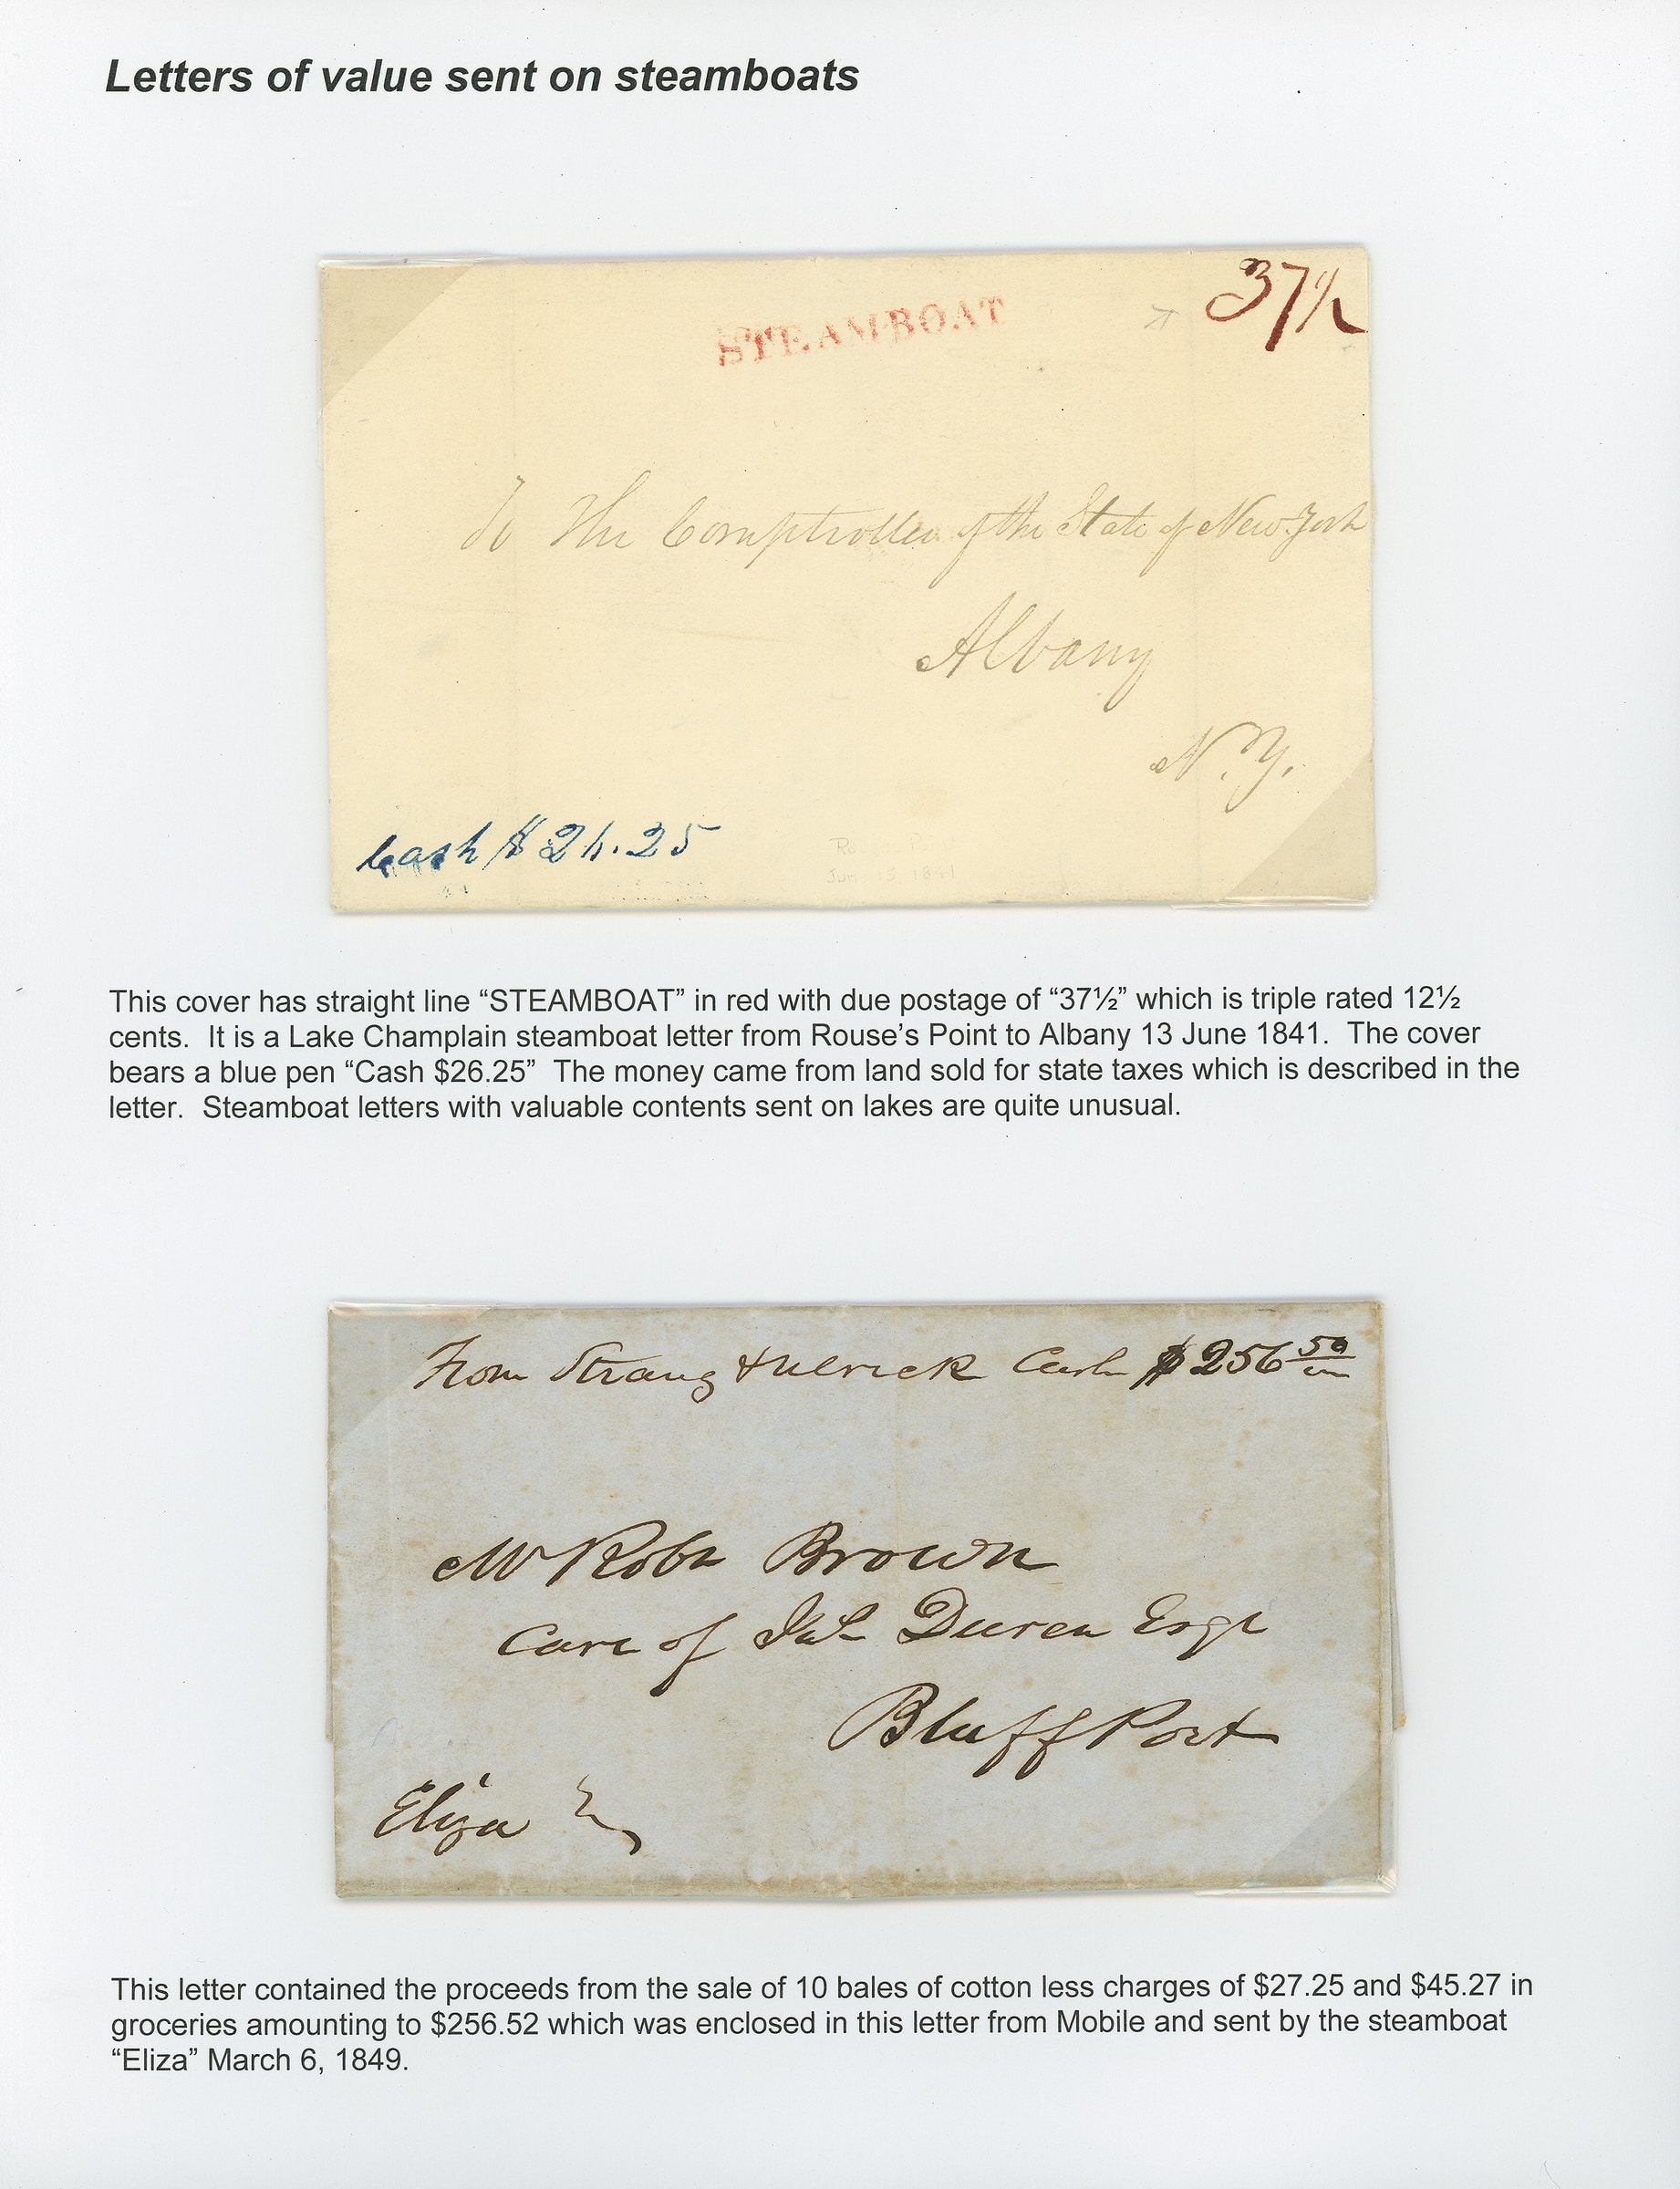 Letters of value sent on steamboats
STEAMBOAT
37½
To The Comptroller of the State of New York
Albany
N.Y.
Cash $26.25
Jun 13, 1841
This cover has straight line “STEAMBOAT” in red with due postage of “37½” which is triple rated 12½
cents. It is a Lake Champlain steamboat letter from Rouse’s Point to Albany 13 June 1841. The cover
bears a blue pen “Cash $26.25” The money came from land sold for state taxes which is described in the
letter. Steamboat letters with valuable contents sent on lakes are quite unusual.
From Strang & Ulrick Cash $256 50
Mr Robt Brown
Care of Duren Esqr
Bluff Port
Eliza
This letter contained the proceeds from the sale of 10 bales of cotton less charges of $27.25 and $45.27 in
groceries amounting to $256.52 which was enclosed in this letter from Mobile and sent by the steamboat
“Eliza” March 6, 1849.